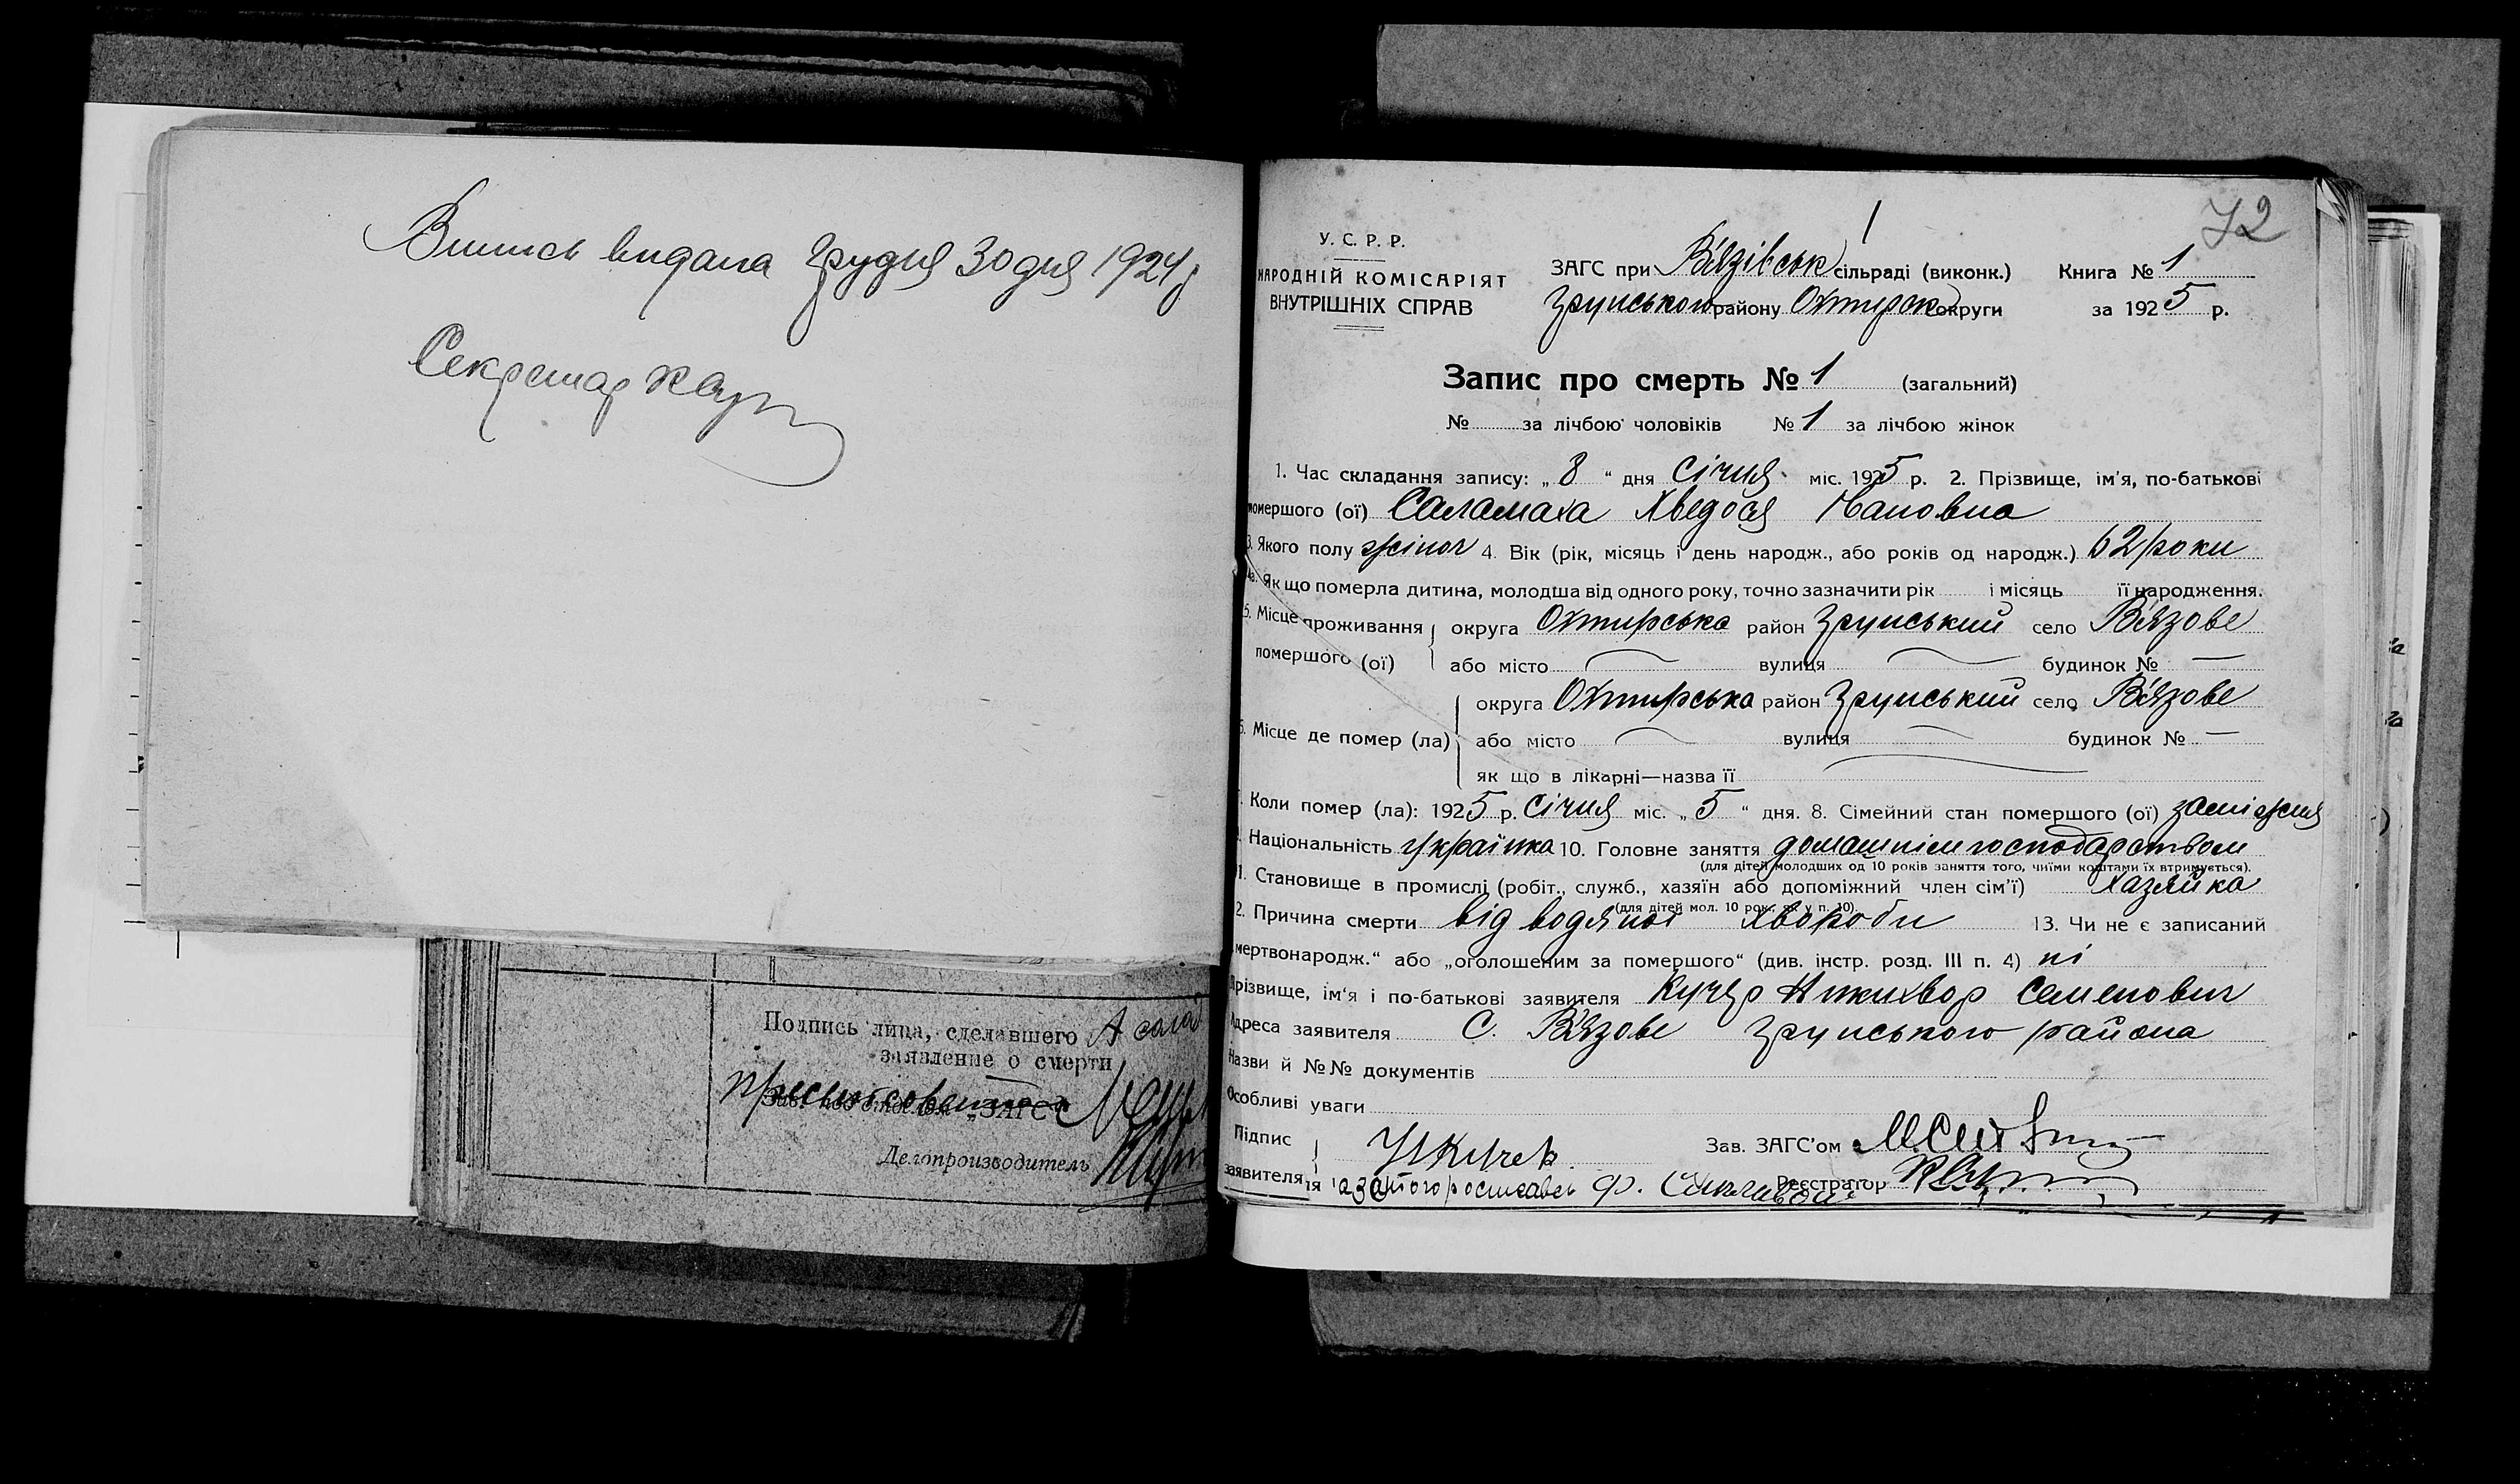 Випись видана Грудня 30 дня 1924 р
Секретар
Подпись лица, сделавшего
заявление о смерти
„ЗАГС“
Делопроизводитель
72
1
У. С. Р. Р.
НАРОДНІЙ КОМІСАРІЯТ
ВНУТРІШНІХ СПРАВ
ЗАГС при Вязівськ сільраді (виконк.) Книга № 1
Грунського району Охтирськ округи за 1925 р.
Запис про смерть № 1 (загальний)
№ за лічбою чоловіків № 1 за лічбою жінок
1. Час складання запису: „ 8 “ дня Січня міс. 1925 р. 2. Прізвище, ім'я, по-батькові
помершого (ої) Саламаха Хведося
3. Якого полу жіноч 4. Вік (рік, місяць і день народж., або років од народж.) 62 роки
4а. Як що померла дитина, молодша від одного року, точно зазначити рік і місяць її народження.
5. Місце проживання округа Охтирська район Грунський село Вязове
помершого (ої) або місто вулиця будинок № —
округа Охтирська район Грунський село Вязове
6. Місце де помер (ла) або місто вулиця будинок № —
як що в лікарні—назва її
7. Коли помер (ла): 1925 р. Січня міс. „ 5 “ дня. 8. Сімейний стан помершого (ої) заміжня
9. Національність українка 10. Головне заняття домашнім господарством
(для дітей молодших од 10 років заняття того, чиїми коштами їх втримується).
11. Становище в промислі (робіт., служб., хазяїн або допоміжний член сім'ї) хазяйка
(для дітей мол. 10 рок., як у п. 10).
12. Причина смерти від водяної хвороби 13. Чи не є записаний
„мертвонародж.“ або „оголошеним за помершого“ (див. інстр. розд. III п. 4) ні
Прізвище, ім'я і по-батькові заявителя Кучер Никихвор Семенович
Адреса заявителя С. Вязове Грунського района
Назви й №№ документів
Особливі уваги
Підпис Н Кучер Зав. ЗАГС'ом
заявителя Реєстратор